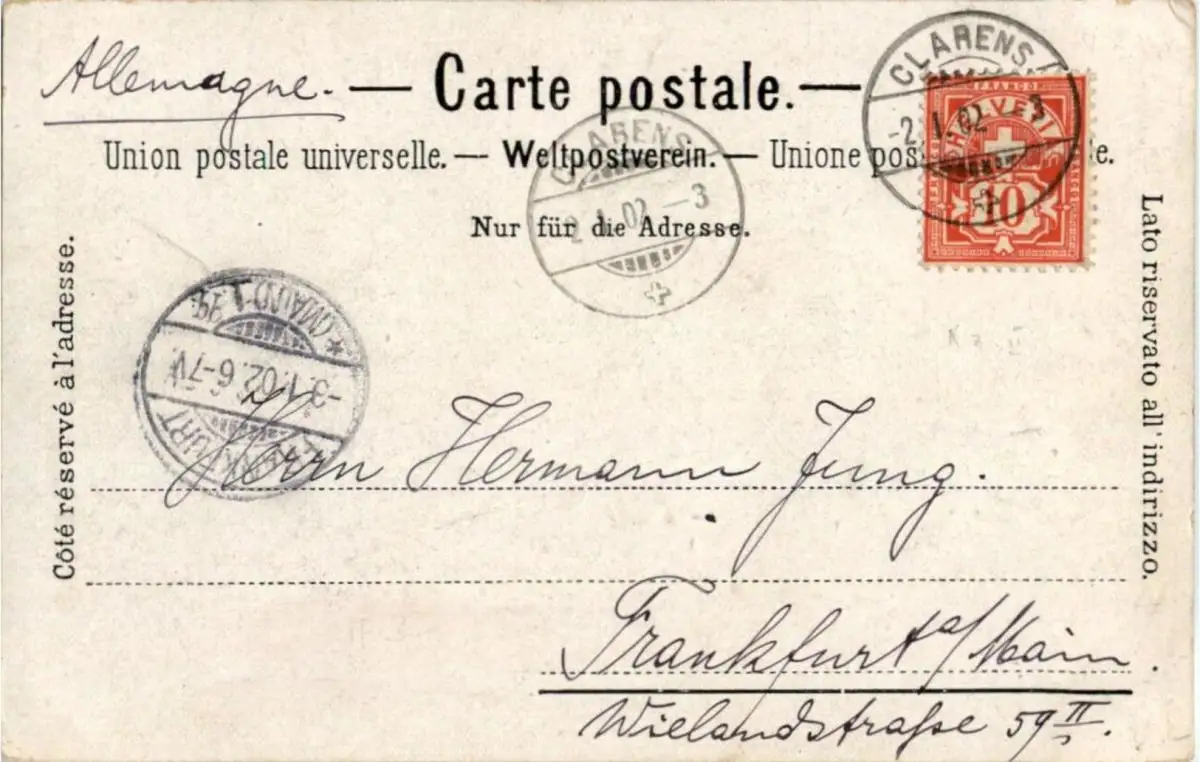 Allemagne.
— Carte postale. —
Union postale universelle. — Weltpostverein. — Unione pos e.
Nur für die Adresse.
CLARENS
-2.I.02 3
FRANCO
HELVETIA
10
CLARENS
2.I.02 – 3
Côté réservé à l'adresse.
Lato riservato all'indirizzo.
FRANKFURT (MAIN) 1
-3.1.02.6-7V.
Herrn Hermann Jung.
Frankfurt a/Main
Wielandstraße 59 II.